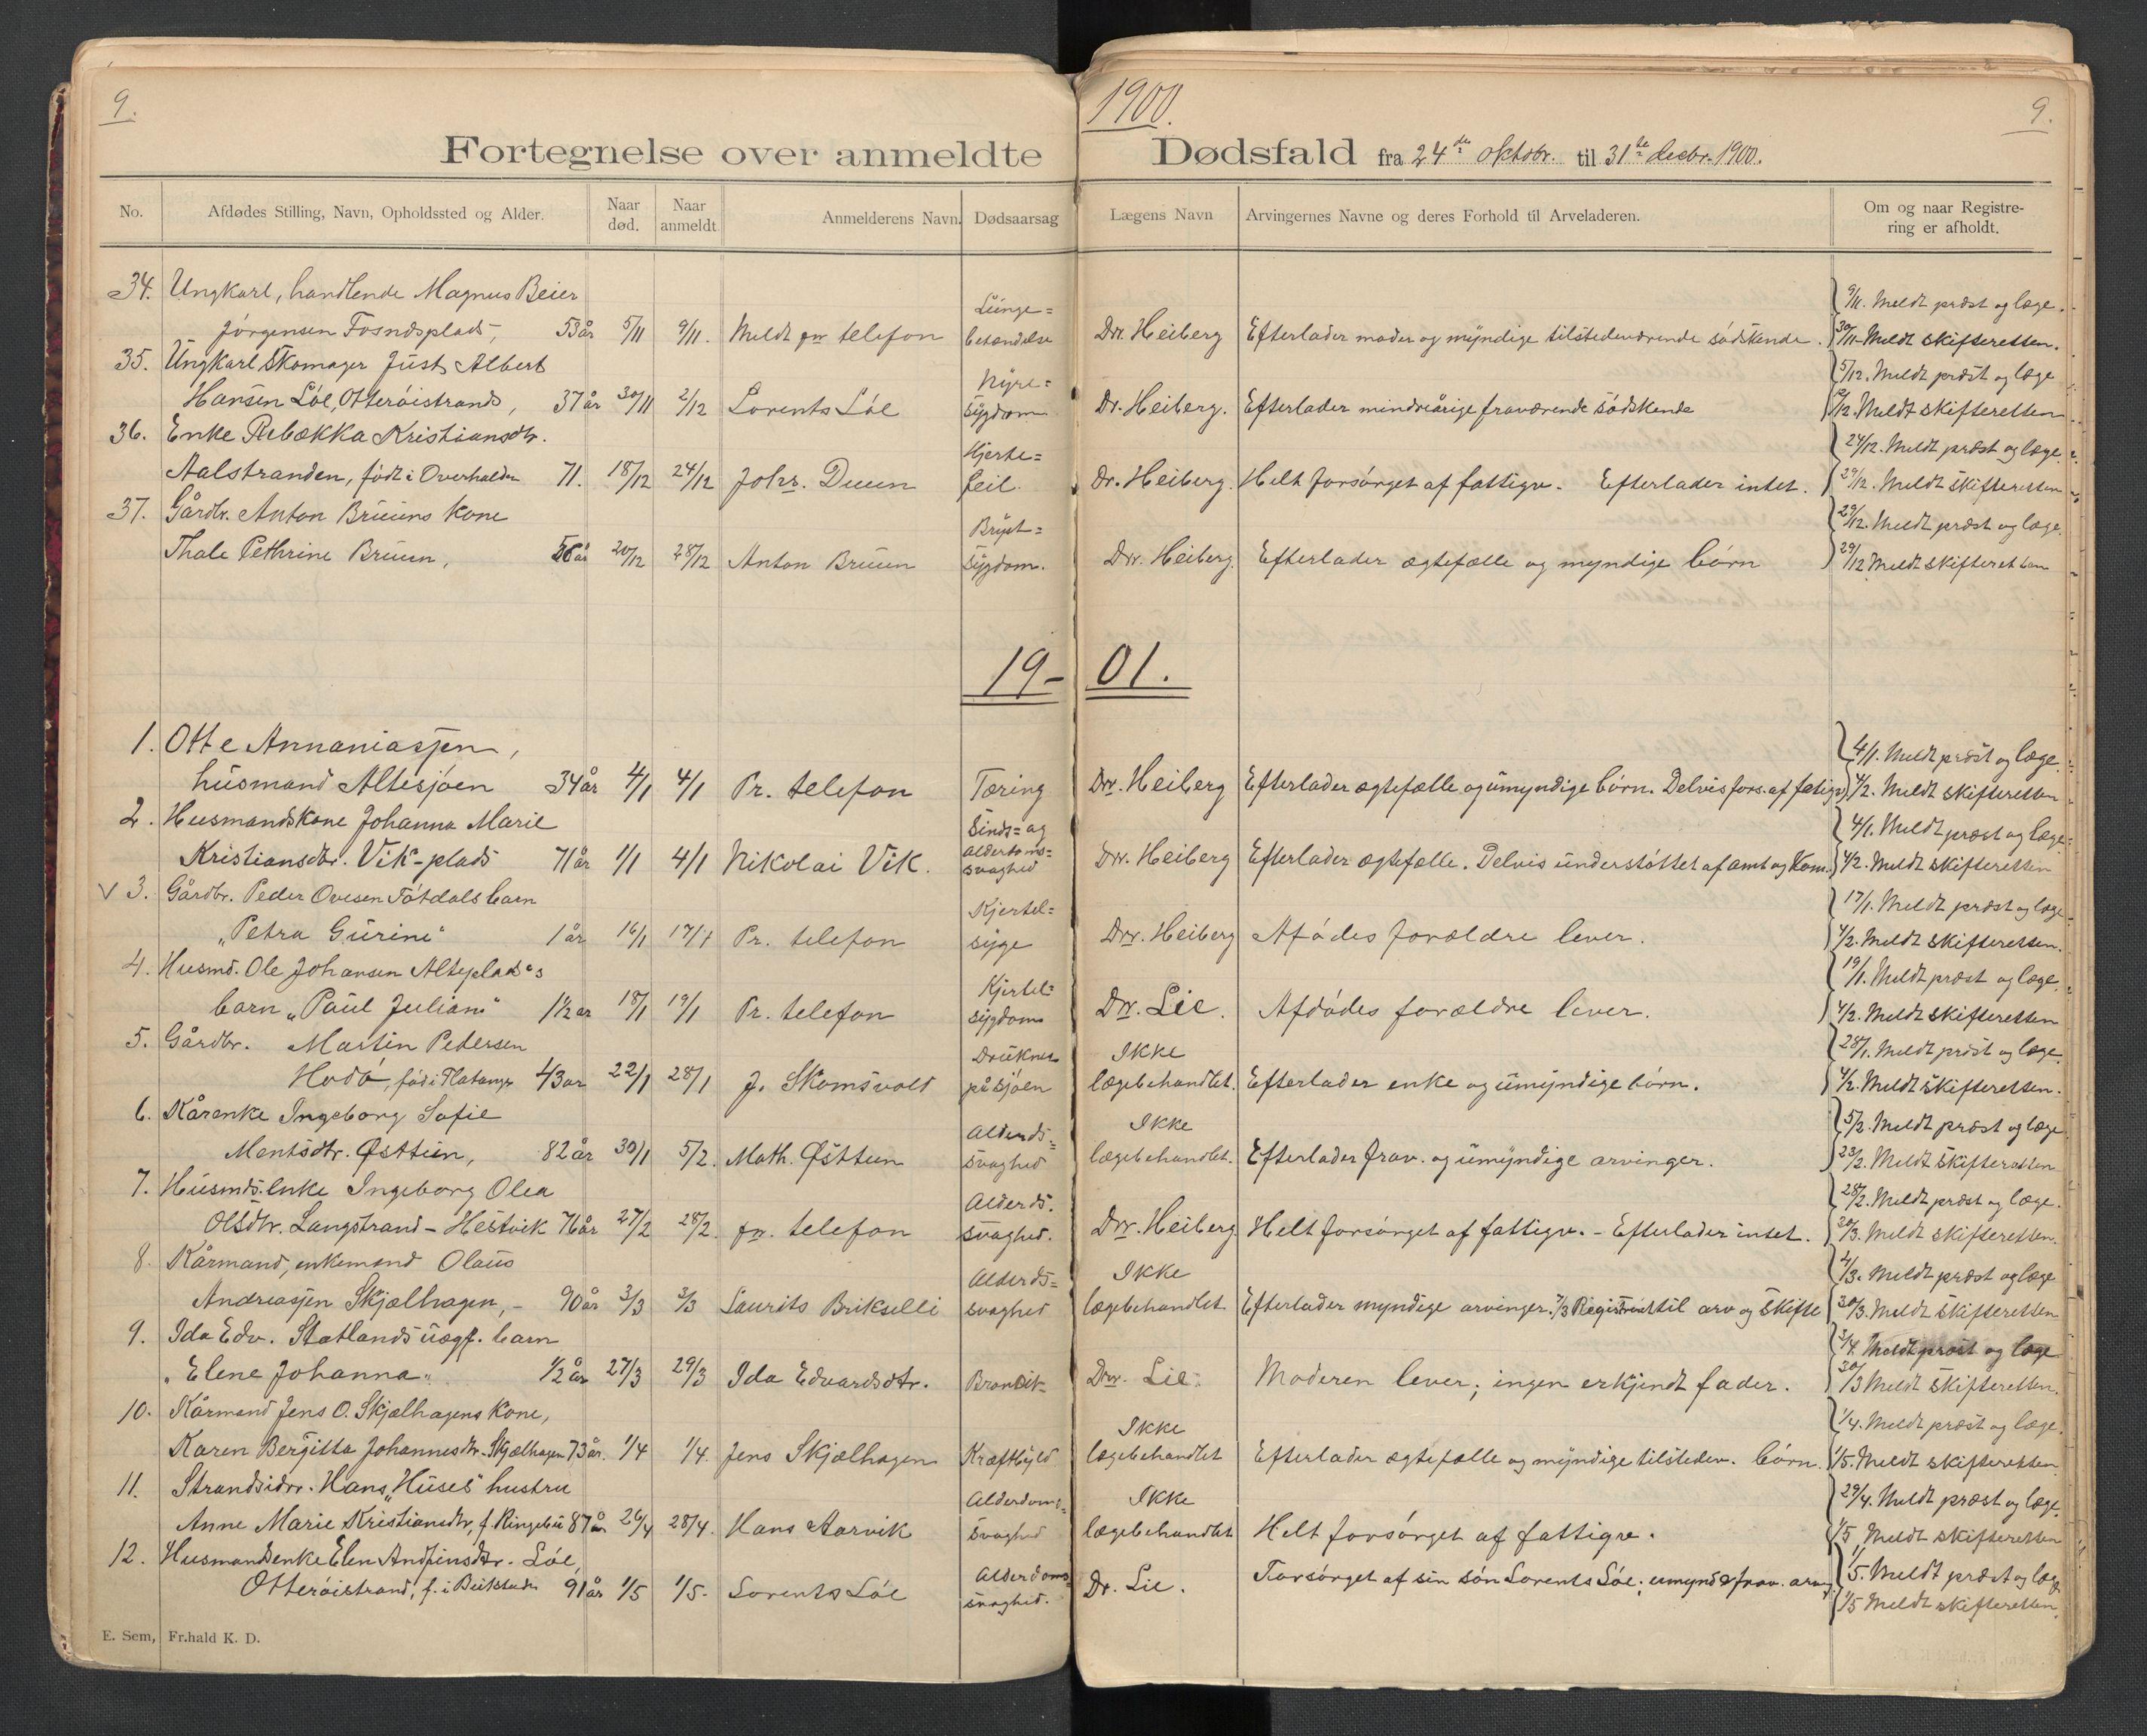 9.
1900.
9.
Fortegnelse over anmeldte Dødsfald fra 24de oktobr. til 31te decbr. 1900.
No.
Afdødes Stilling, Navn, Opholdssted og Alder.
Naar død.
Naar anmeldt.
Anmelderens Navn.
Dødsaarsag
Lægens Navn
Arvingernes Navne og deres Forhold til Arveladeren.
Om og naar Registrering er afholdt.
34. Ungkarl, handlende Magnus Beier Lunge= 9/11. Meldt præst og læge.
Jörgensen Fosnæsplads, 53 år 5/11 9/11. Meldt pr telefon betændelse Dr. Heiberg Efterlader moder og myndige tilstedeværende södskende. 30/11 Meldt skifteretten.
35. Ungkarl Skomager Just Albert Nyre= 5/12. Meldt præst og læge
Hansen Löe, Otteröistrand, 37 år 30/11 2/12 Lorents Löe sygdom Dr. Heiberg. Efterlader mindreårige fraværende södskende Meldt skifteretten
36. Enke Rebækka Kristiansdtr. Hjerte= 24/12. Meldt præst og læge.
Aalstranden, födt i Overhalden 71. 18/12 24/12 Johs. Duun feil. Dr. Heiberg. Helt forsörget af fattigv. Efterlader intet. 29/12. Meldt skifteretten
37. Gårdbr. Anton Bruuns kone Bryst= 29/12. Meldt præst og læge.
Thale Pethrine Bruun, 56 år 20/12 28/12 Anton Bruun sygdom. Dr. Heiberg. Efterlader ægtefælle og myndige börn 29/12 Meldt skifteretten
19-01.
1. Otte Annaniassen, 4/1. Meldt præst og læge.
husmand Altesjöen 34 år 4/1 4/1 Pr. telefon Tæring Dr. Heiberg Efterlader ægtefælle og umyndige börn. Delvis fors. af fatigv. 4/2. Meldt skifteretten
2. Husmandskone Johanna Marie Sinds= og 4/1. Meldt præst og læge.
Kristiansdtr. Vik-plads 71 år 1/1 4/1 Nikolai Vik. alderdoms=svaghed Dr. Heiberg Efterlader ægtefælle. Delvis understöttet af amt og Kom. 4/2. Meldt skifteretten
V 3. Gårdbr. Peder Ovesen Tötdals barn Kjertel= 17/1. Meldt præst og læge
„Petra Gurine" 1 år 16/1 17/1 Pr. telefon syge Dr. Heiberg Afödes forældre lever. 4/2. Meldt skifteretten.
4. Husmd. Ole Johansen Alteplads's Kjertel= 19/1. Meldt præst og læge.
barn „Paul Julian" 1½ år 18/1 19/1 Pr. telefon sygdom Dr. Lie. Afdödes forældre lever. 4/2. Meldt skifteretten
5. Gårdbr. Martin Petersen Druknet Ikke 28/1. Meldt præst og læge.
Hodö, föd i Flatanger 43 år 22/1 28/1 J. Skomsvold på sjöen lægebehandlet. Efterlader enke og umyndige börn. 4/2. Meldt skifteretten.
6. Kårenke Ingeborg Sofie Alderds= Ikke 5/2. Meldt præst og læge
Mentsdtr. Østtun, 82 år 30/1 5/2. Math. Østtun svaghed lægebehandlet. Efterlader frav. og umyndige arvinger. 23/2. Meldt skifteretten
7. Husmds.enke Ingeborg Olea Alderds. 28/2. Meldt præst og læge.
Olsdtr. Langstrand - Hestvik 76 år 27/2 28/2. pr. telefon svaghed. Dr. Heiberg. Helt forsörget af fattigv. - Efterlader intet. 30/3. Meldt skifteretten.
8. Kårmand, enkemand Olaus Alderds= Ikke 4/3. Meldt præst og læge
Andreassen Skjælhagen, - 90 år 3/3 3/3 Laurits Brikselli svaghed lægebehandlet Efterlader myndige arvinger. 7/3 Registreret til arv og skifte 30/3. Meldt skifteretten
9. Ida Edv. Statlands uægt. barn 3/4. Meldt præst og læge
„Elene Johanna" ½ år 27/3 29/3 Ida Edvardsdtr. Bronkit- Dr. Lie. Moderen lever; ingen erkjendt fader. 30/3 Meldt skifteretten.
10. Kårmand Jens O. Skjælhagens kone, Ikke 1/4. Meldt præst og læge.
Karen Bergitta Johannesdtr. Skjælhagen 73 år. 1/4 1/4. Jens Skjælhagen Kræftbyld lægebehandlet Efterlader ægtefælle og myndige tilstedev. börn. 1/5. Meldt skifteretten
11. Strandsidr. Hans „Huses" hustru Alderdoms= Ikke 29/4. Meldt præst og læge.
Anne Marie Kristiansdtr, f. Ringebu 87 år 26/4 28/4. Hans Aarvik svaghed lægebehandlet Helt forsörget af fattigv. 1/5. Meldt skifteretten
12. Husmandsenke Elen Andfinsdtr. Löe, Alderdoms= 1/5. Meldt præst og læge
Otteröistrand, f. i Beitstaden 91 år 1/5 1/5. Lorents Löe svaghed. Dr. Lie. Forsörget af sin sön Lorents Löe; umynd & frav. arving 1/5 Meldt skifteretten.
E. Sem, Fr.hald K. D.